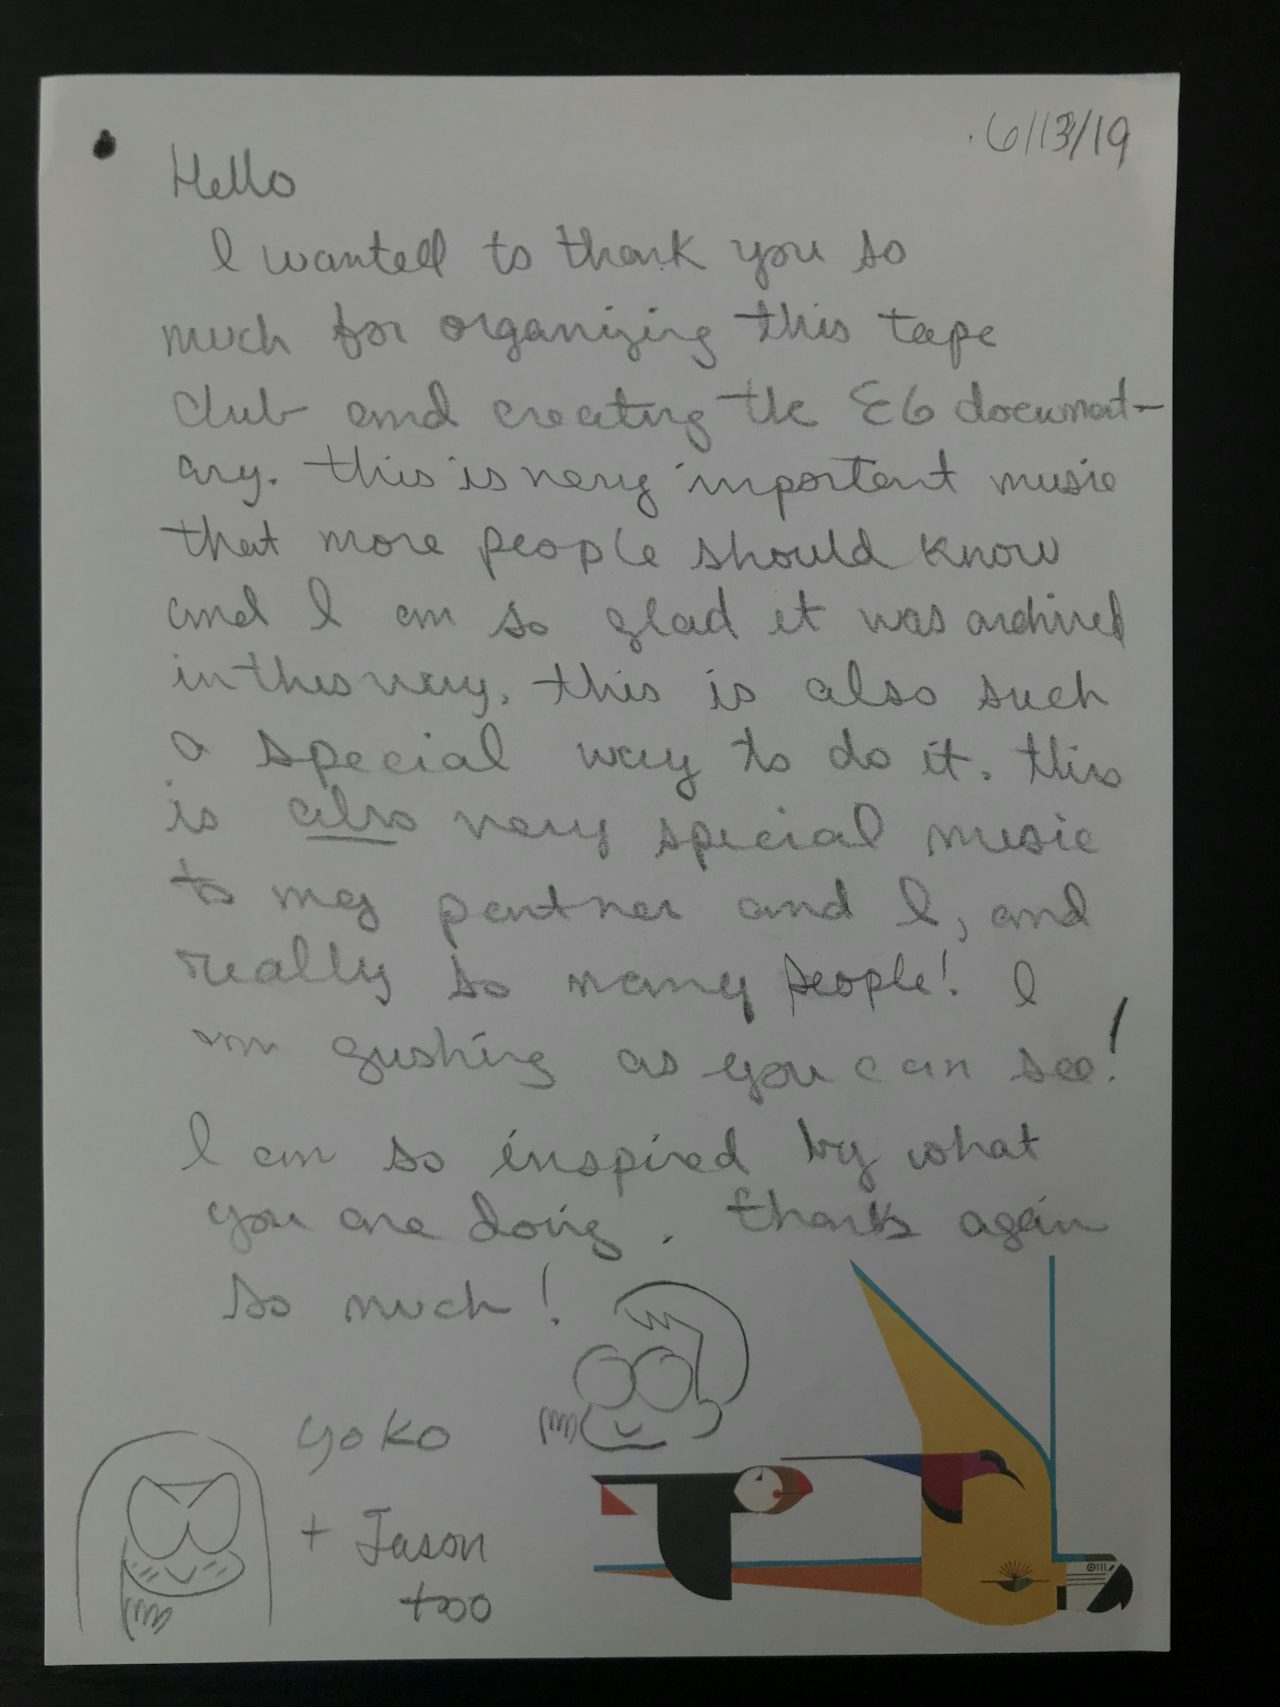 6/13/19
Hello
I wanted to thank you so
much for organizing this tape
club and creating the E6 document-
ary. This is very important music
that more people should know
and I am so glad it was archived
in this way. This is also such
a special way to do it. This
is also very special music
to my partner and I, and
really so many people! I
am gushing as you can see!
I am so inspired by what
you are doing. Thanks again
so much!
Yoko
+ Jason
too